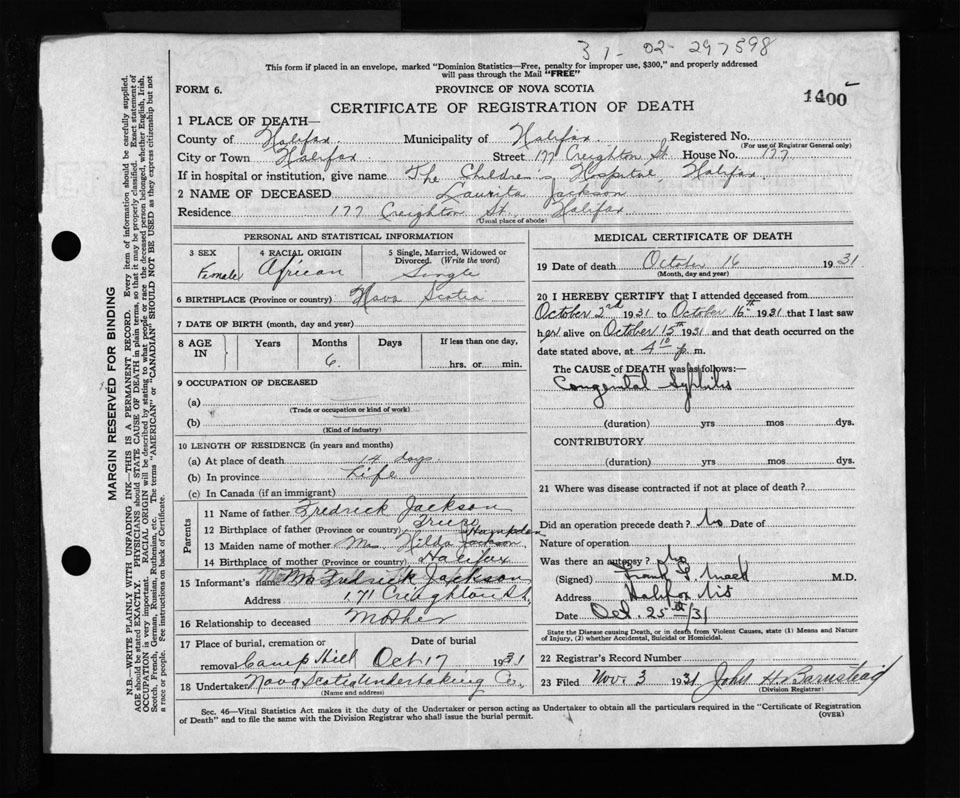 31-02-297598
This form if placed in an envelope, marked "Dominion Statistics—Free, penalty for improper use, $300," and properly addressed
will pass through the Mail "FREE"
FORM 6.
PROVINCE OF NOVA SCOTIA
1400
CERTIFICATE OF REGISTRATION OF DEATH
1 PLACE OF DEATH—
County of Halifax Municipality of Halifax Registered No.
(For use of Registrar General only)
City or Town Halifax Street 177 Creighton St. House No. 177
If in hospital or institution, give name The Children's Hospital, Halifax
2 NAME OF DECEASED Laurita Jackson
Residence 177 Creighton St. Halifax
(Usual place of abode)
PERSONAL AND STATISTICAL INFORMATION
3 SEX Female
4 RACIAL ORIGIN African
5 Single, Married, Widowed or Divorced. (Write the word) Single
6 BIRTHPLACE (Province or country) Nova Scotia
7 DATE OF BIRTH (month, day and year)
8 AGE IN Years Months 6. Days If less than one day, hrs. or min.
9 OCCUPATION OF DECEASED
(a)
(Trade or occupation or kind of work)
(b)
(Kind of industry)
10 LENGTH OF RESIDENCE (in years and months)
(a) At place of death 14 days
(b) In province Life
(c) In Canada (if an immigrant)
Parents
11 Name of father Fredrick Jackson
12 Birthplace of father (Province or country)
13 Maiden name of mother Mrs Hilda Jackson
14 Birthplace of mother (Province or country) Halifax
15 Informant's name Mrs Fredrick Jackson
Address 171 Creighton St.
16 Relationship to deceased Mother
17 Place of burial, cremation or removal Camp Hill Date of burial Oct 17 1931
18 Undertaker Nova Scotia Undertaking Co.
(Name and address)
MEDICAL CERTIFICATE OF DEATH
19 Date of death October 16 1931
(Month, day and year)
20 I HEREBY CERTIFY that I attended deceased from
October 2nd 1931 to October 16th 1931 that I last saw
her alive on October 15th 1931 and that death occurred on the
date stated above, at 4 10 p. m.
The CAUSE OF DEATH was as follows:—
Congenital Syphilis
(duration) yrs mos dys.
CONTRIBUTORY
(duration) yrs. mos. dys.
21 Where was disease contracted if not at place of death?
Did an operation precede death? No Date of
Nature of operation
Was there an autopsy? No
(Signed) Frank G. Mack M.D.
Address Halifax NS
Date Oct. 25th/31
State the Disease causing Death, or in death from Violent Causes, state (1) Means and Nature
of Injury, (2) whether Accidental, Suicidal or Homicidal.
22 Registrar's Record Number
23 Filed Nov. 3 1931 John H. Barnstead
(Division Registrar)
Sec. 46—Vital Statistics Act makes it the duty of the Undertaker or person acting as Undertaker to obtain all the particulars required in the "Certificate of Registration
of Death" and to file the same with the Division Registrar who shall issue the burial permit.
(OVER)
MARGIN RESERVED FOR BINDING
N.B.—WRITE PLAINLY WITH UNFADING INK—THIS IS A PERMANENT RECORD. Every item of information should be carefully supplied.
AGE should be stated EXACTLY. PHYSICIANS should STATE CAUSE OF DEATH in plain terms, so that it may be properly classified. Exact statement of
OCCUPATION is very important. RACIAL ORIGIN will be described by stating to what people or race the deceased person belonged, whether English, Irish,
Scotch, French, German, Russian, Ruthenian, etc. The terms "AMERICAN" or "CANADIAN" SHOULD NOT BE USED as they express citizenship but not
a race or people. See instructions on back of Certificate.